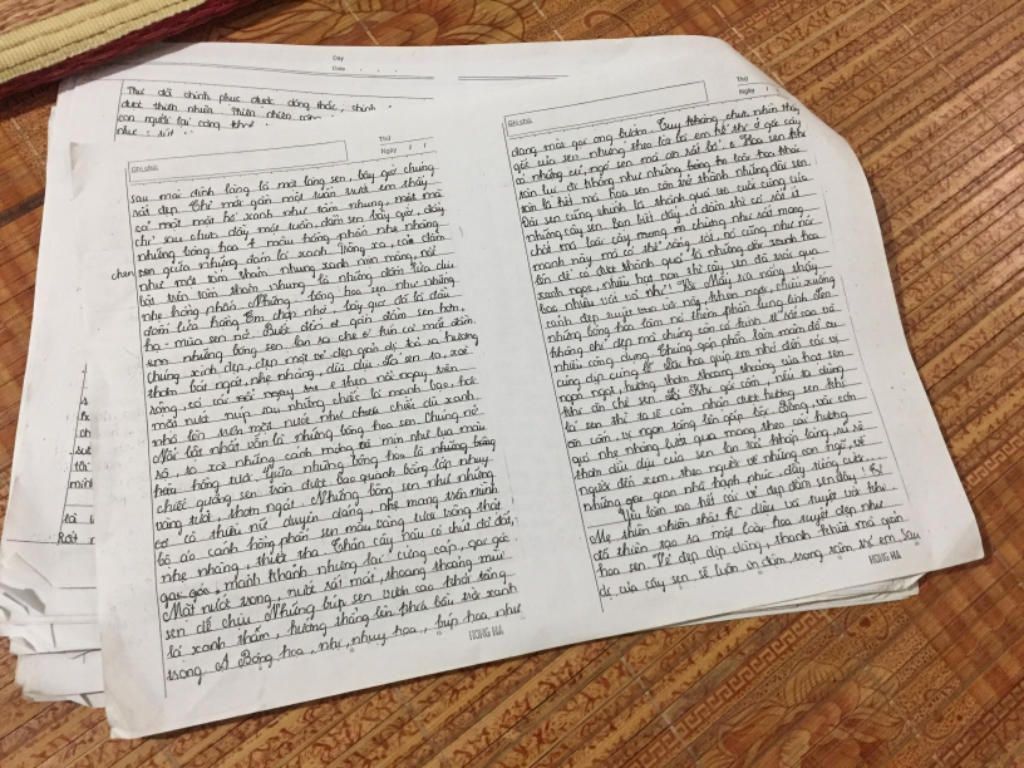 Day
Date
Thứ đã chinh phục được dòng thác, chính
được thiên nhiên. Thiên nhiên còn
con người lại càng
như
Thứ
Ngày / /
Ghi chú
sau mái đình làng là một làng sen, bây giờ chúng
rất đẹp. Chỉ mới gần một tuần trước em thấy
cả một mặt hồ xanh như tấm nhung, một mà
chỉ sau chưa đầy một tuần, đầm sen bây giờ, đầy
những bông hoa 1 màu hồng phấn nhẹ nhàng
chen sen giữa những đám lá xanh. Trông xa, cả đầm
như một tấm thảm nhung xanh mịn màng, nổi
bật trên tấm thảm nhung là những đốm lửa dịu
nhẹ hồng phấn. Những bông hoa sen như những
đốm lửa hồng. Em chợp nhớ, bây giờ đã là đầu
hạ - mùa sen nở. Bước đến gần đầm sen hơn,
em những bông sen lan tỏa che kín cả mặt đầm.
Chúng xinh đẹp, đẹp một vẻ đẹp giản dị tỏa hương
thơm bát ngát, nhẹ nhàng, dịu dịu. Lá sen to, xoè
rộng, có cái nổi ngay e thẹn nổi ngay trên
mặt nước núp sau những chiếc lá mạnh bạo, hơi
nhô lên trên mặt nước như chiếc dù xanh.
Nổi bật nhất vẫn là những bông hoa sen. Chúng nở
rộ, to xoè những cánh mỏng mịn như lụa màu
hồng tươi. Giữa những bông hoa là những bông
chiếc gương sen tròn được bao quanh bằng lớp nhụy
vàng tươi, thơm ngát. Những bông sen như những
cô thiếu nữ duyên dáng, nhẹ mang trên mình
bộ áo cánh hồng phấn sen màu vàng tươi trông thật
nhẹ nhàng, thiết tha. Thân cây nâu có chút đo đỏ,
gai góc, mảnh khảnh nhưng lại cứng cáp, gai góc.
Mặt nước trong, nước rất mát, thoang thoảng mùi
sen dễ chịu. Những búp sen vươn cao khỏi tầng
lá xanh thẫm, hướng thẳng lên phía bầu trời xanh
trong. Bông hoa, nhị, nhụy hoa, búp hoa, như
HỒNG HÀ
Thứ
Ngày / /
Ghi chú
đang mời gọi ong bướm. Tuy không chưa nhìn thấy
gốc của sen nhưng theo lời bà em kể thì ở gốc cây
có những củ, ngó sen mà ăn rất bổ. Hoa sen khi
tàn lụi đi không như những bông hoa loài hoa khác
tàn là hết mà hoa sen còn trở thành những đài sen.
Đài sen cũng chính là thành quả to cuối cùng của
những cây sen. Bạn biết đấy, ở đầm thì có rất ít
chất mà loài cây mong manh chúng như rất mong
manh này mà có thể sống tốt, nó cũng như nói
lên để có được thành quả là những đài xanh hoa
xanh ngọc, nhiều hạt non thì cây sen đã trải qua
bao nhiêu vất vả nhỉ! Vài Mấy tia nắng thấy
cảnh đẹp tuyệt vời này, khôn ngoi, chiếu xuống
những bông hoa làm nó thêm phần lung linh. Đến
không chỉ đẹp mà chúng còn có kinh tế rất cao và
nhiều công dụng. Chúng góp phần làm món đồ ăn
cúng đẹp cúng lễ. Đài hoa giúp em nhớ đến các vị
ngọt ngọt, hương thơm thoang thoảng của hạt sen
khi ăn chè sen. Lá Khi gói cốm, nếu ta dùng
lá sen thì ta sẽ cảm nhận được hương sen khi
ăn cốm, vị ngon tăng lên gấp bội. Bỗng, vài cơn
gió nhẹ nhàng lướt qua mang theo cái hương
thơm dịu dịu của sen lan toả khắp làng, rủ rê
người đến xem, theo người về những con ngõ, về
những góc quan nhà hạnh phúc, đầy tiếng cười.
Yêu làm sao hết cái vẻ đẹp đầm sen đây! Bà
Mẹ thiên nhiên thật kì diệu và tuyệt vời khi
đã thiên tạo ra một loài hoa tuyệt đẹp như
hoa sen. Vẻ đẹp dịp dàng, thanh khiết mà giản
dị của cây sen sẽ luôn in đậm trong tâm trí em sau
HỒNG HÀ